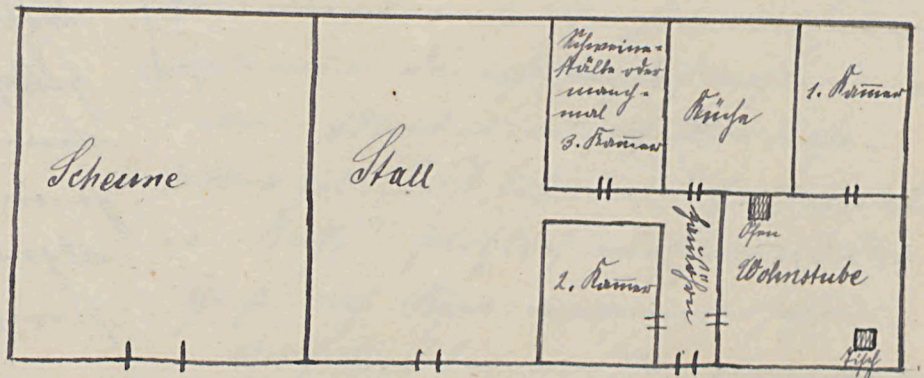 Scheune
Stall
Schweine-
ställe oder
manch-
mal
3. Kam̅er
Küche
1. Kam̅er
2. Kam̅er
Hausöhrn
Ofen
Wohnstube
Tisch